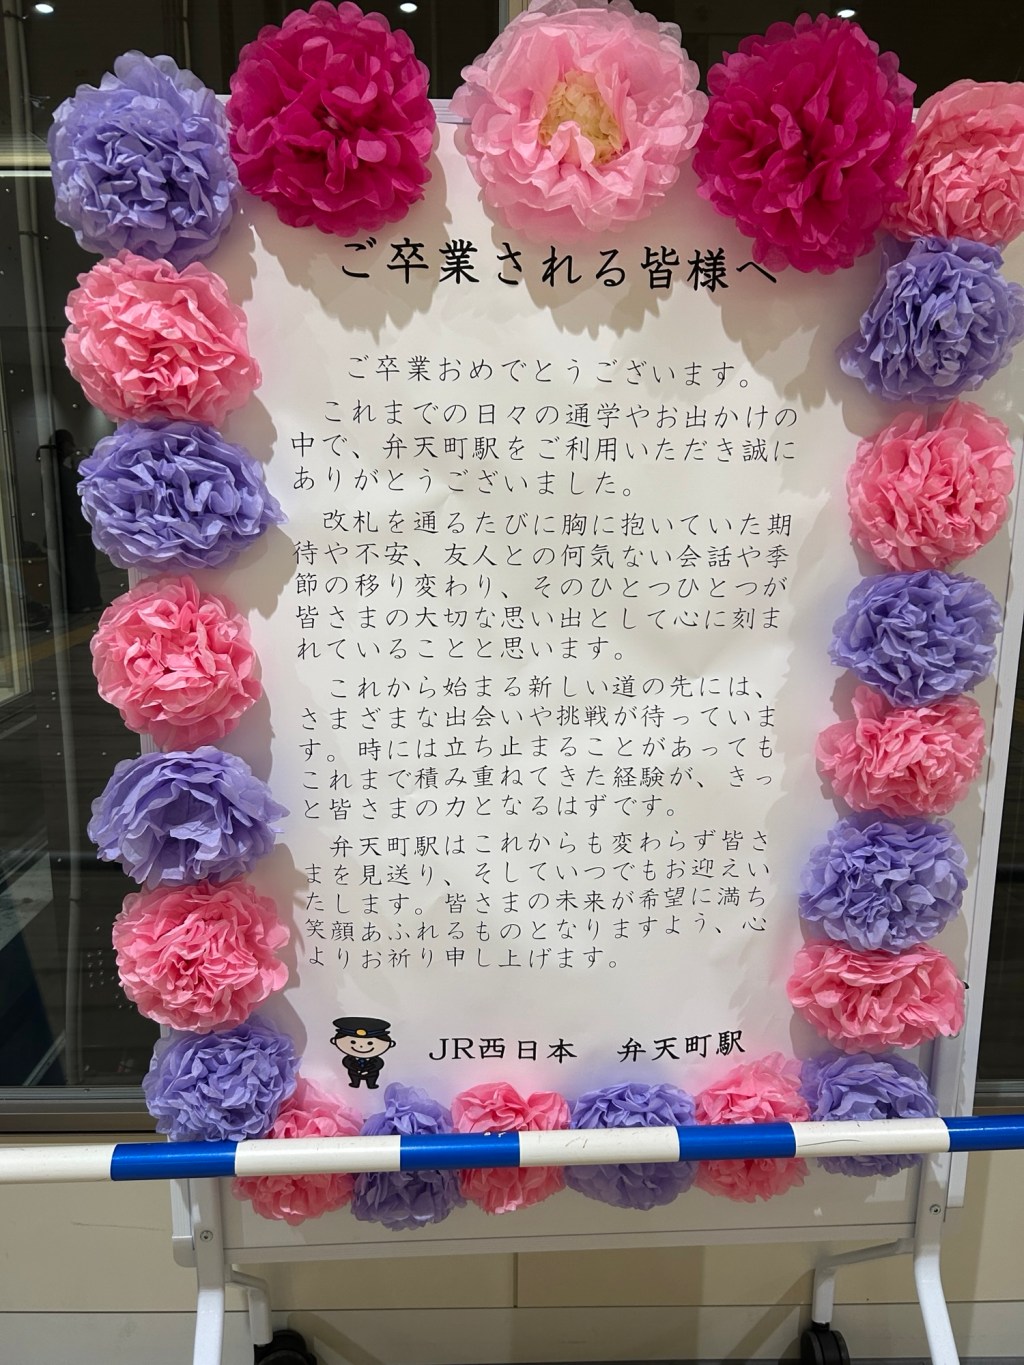 ご卒業される皆様へ
ご卒業おめでとうございます。
これまでの日々の通学やお出かけの
中で、弁天町駅をご利用いただき誠に
ありがとうございました。
改札を通るたびに胸に抱いていた期
待や不安、友人との何気ない会話や季
節の移り変わり、そのひとつひとつが
皆さまの大切な思い出として心に刻ま
れていることと思います。
これから始まる新しい道の先には、
さまざまな出会いや挑戦が待っていま
す。時には立ち止まることがあっても
これまで積み重ねてきた経験が、きっ
と皆さまの力となるはずです。
弁天町駅はこれからも変わらず皆さ
まを見送り、そしていつでもお迎えい
たします。皆さまの未来が希望に満ち
笑顔あふれるものとなりますよう、心
よりお祈り申し上げます。
JR西日本 弁天町駅